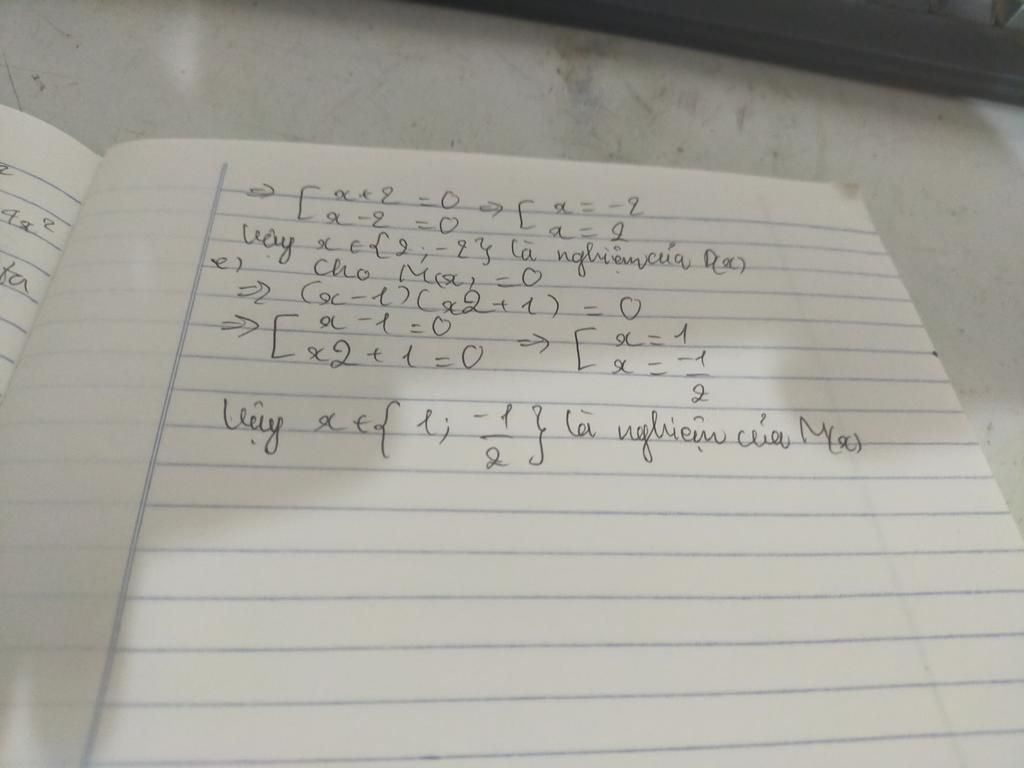 ⇒ [ x + 2 = 0 ⇒ [ x = -2
x - 2 = 0 x = 2
Vậy x ∈ {2; -2} là nghiệm của P(x)
e) Cho M(x) = 0
⇒ (x - 1)(x2 + 1) = 0
⇒ [ x - 1 = 0 ⇒ [ x = 1
x2 + 1 = 0 x = -1/2
Vậy x ∈ { 1; -1/2 } là nghiệm của M(x)
4x²